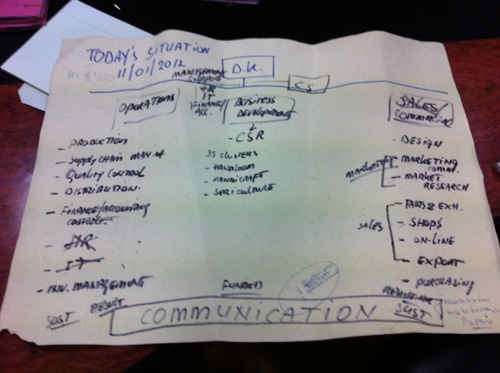 TODAY'S SITUATION
11/01/2012
MANAGEMENT
D.K.
CS
HR
IT
FINANCE/
ACC.
OPERATIONS
BUSINESS
DEVELOPMENT
SALES/
- PRODUCTION
- SUPPLY CHAIN MAN.
- QUALITY CONTROL
- DISTRIBUTION
- FINANCE/ACCOUNTING
- HR
- IT
- INV. MANAGEMENT
COST
- CSR
35 CLUSTERS
- HANDLOOM
- HANDICRAFT
- SERICULTURE
FUNDED
- DESIGN
MARKETING
- MARKETING
- MARKET
RESEARCH
SALES
- FAIRS & EXH.
- SHOPS
- ON-LINE
- EXPORT
- PURCHASING
COMMUNICATION